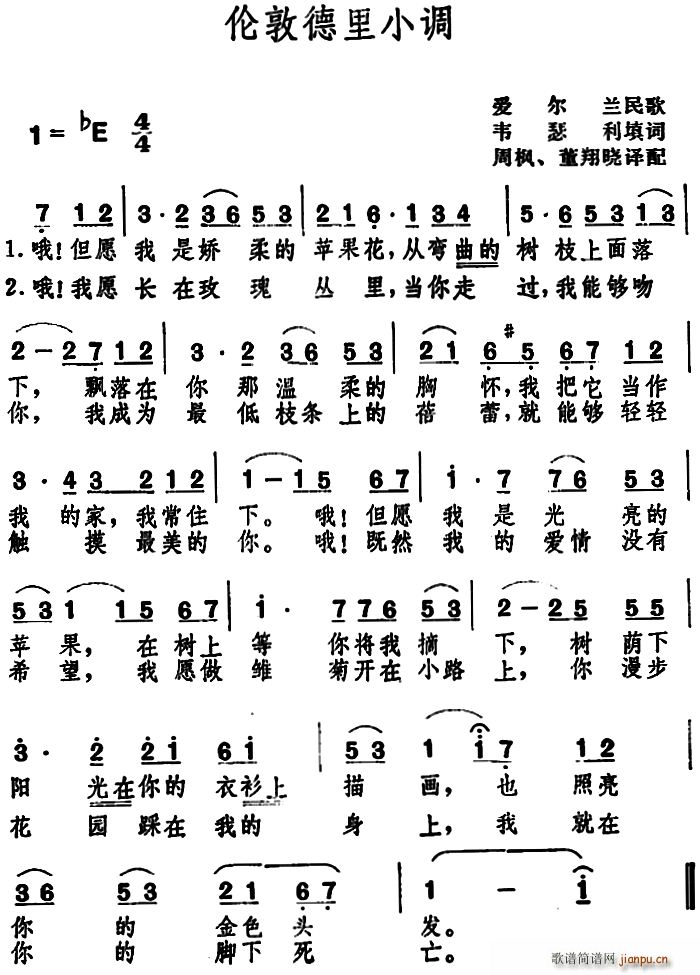 伦敦德里小调
1= ♭E 4/4
爱尔兰民歌
韦瑟利填词
周枫、董翔晓译配
7 1 2 | 3 · 2 3 6 5 3 | 2 1 6 · 1 3 4 | 5 · 6 5 3 1 3 |
1.哦!但愿我是娇柔的苹果花,从弯曲的树枝上面落
2.哦!我愿长在玫瑰丛里,当你走过,我能够吻
2 – 2 7 1 2 | 3 · 2 3 6 5 3 | 2 1 6 #5 6 7 1 2 |
下,飘落在你那温柔的胸怀,我把它当作
你,我成为最低枝条上的蓓蕾,就能够轻轻
3 · 4 3 2 1 2 | 1 – 1 5 6 7 | 1 · 7 7 6 5 3 |
我的家,我常住下。哦!但愿我是光亮的
触摸最美的你。哦!既然我的爱情没有
5 3 1 1 5 6 7 | 1 · 7 7 7 6 5 3 | 2 – 2 5 5 5 |
苹果,在树上等你将我摘下,树荫下
希望,我愿做雏菊开在小路上,你漫步
3 · 2 2 1 6 1 | 5 3 1 1 7 1 2 |
阳光在你的衣衫上描画,也照亮
花园踩在我的身上,我就在
3 6 5 3 2 1 6 7 | 1 – 1 ‖
你的金色头发。
你的脚下死亡。
歌谱简谱网
jianpu.cn